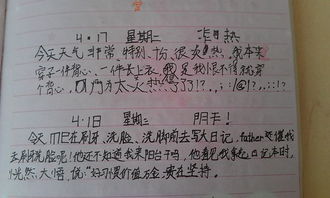 4.17 星期二 热
今天天气非常、特别、十分、很炎热,我本来
穿了一件背心、一件长上衣,我是我恨不得就穿
个背心,太火热了!?
4.18 星期三 阴天!
今天ME在刷牙、洗脸、洗脚前去写大日记,father还催我
去刷牙洗脸呢!他还不知道我来阳台干吗,他看见我拿起日记本时,
恍然大悟,说:“好习惯价值万金,贵在坚持。